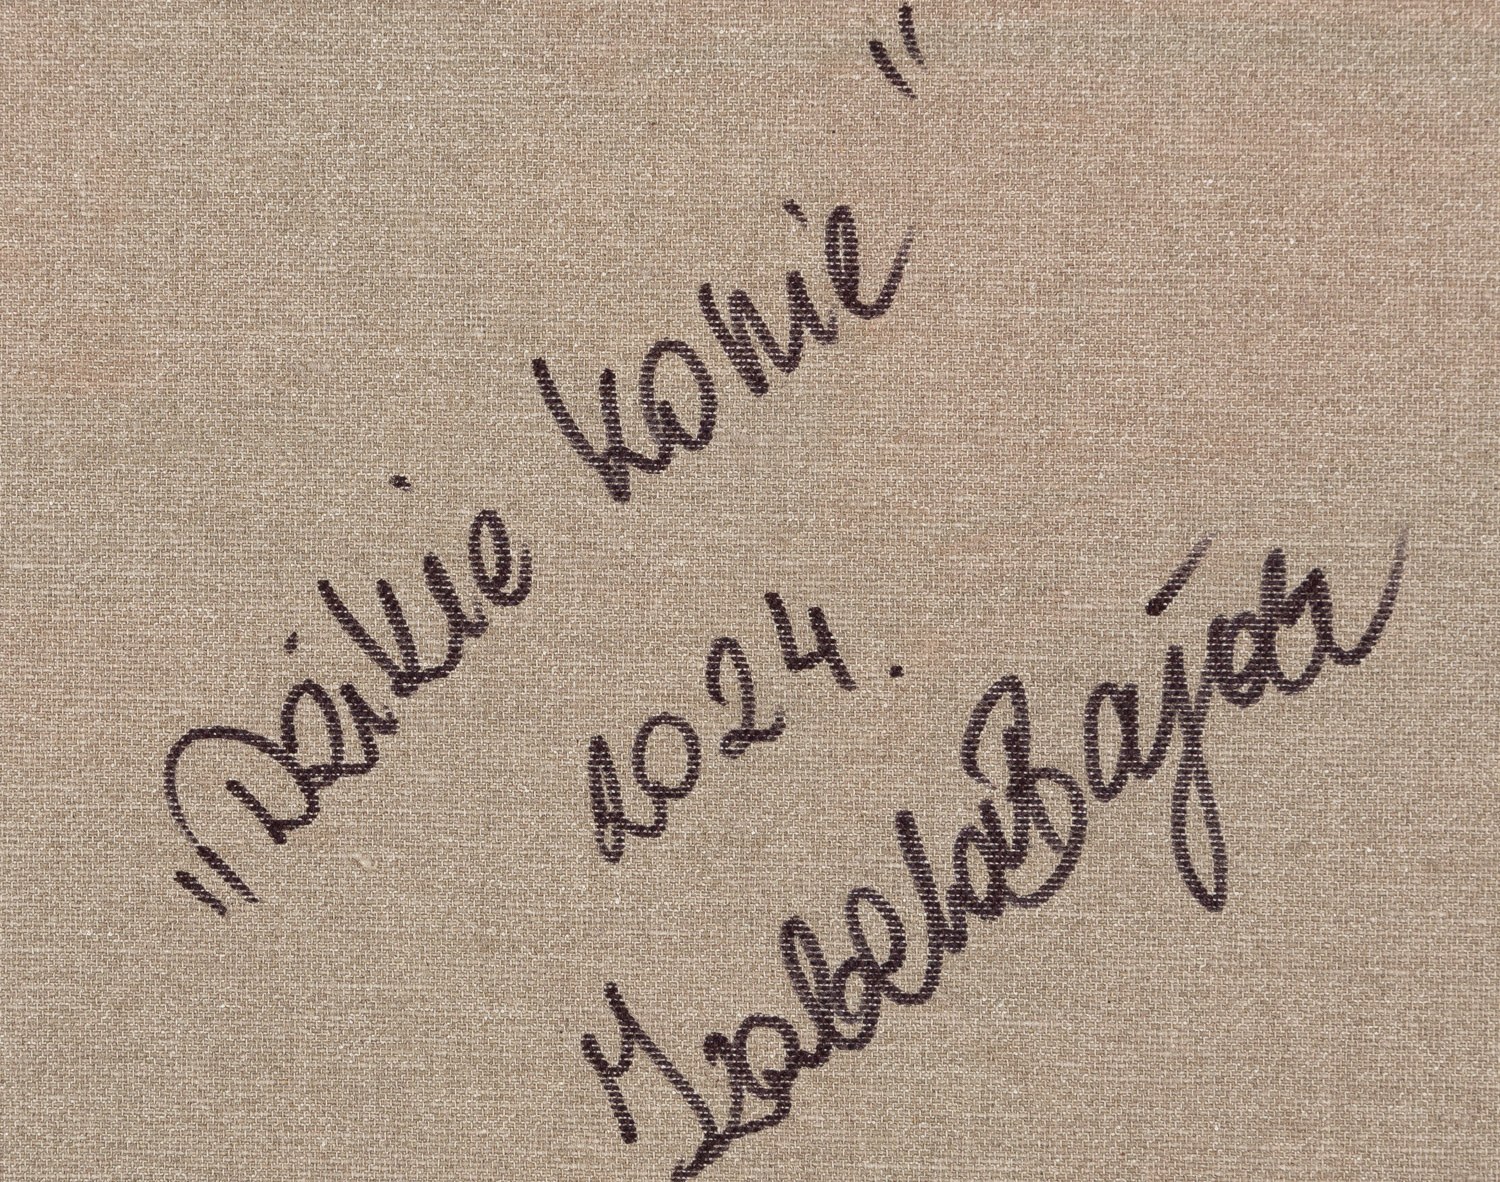 "Dzikie konie"
2024.
Izabela Bajda